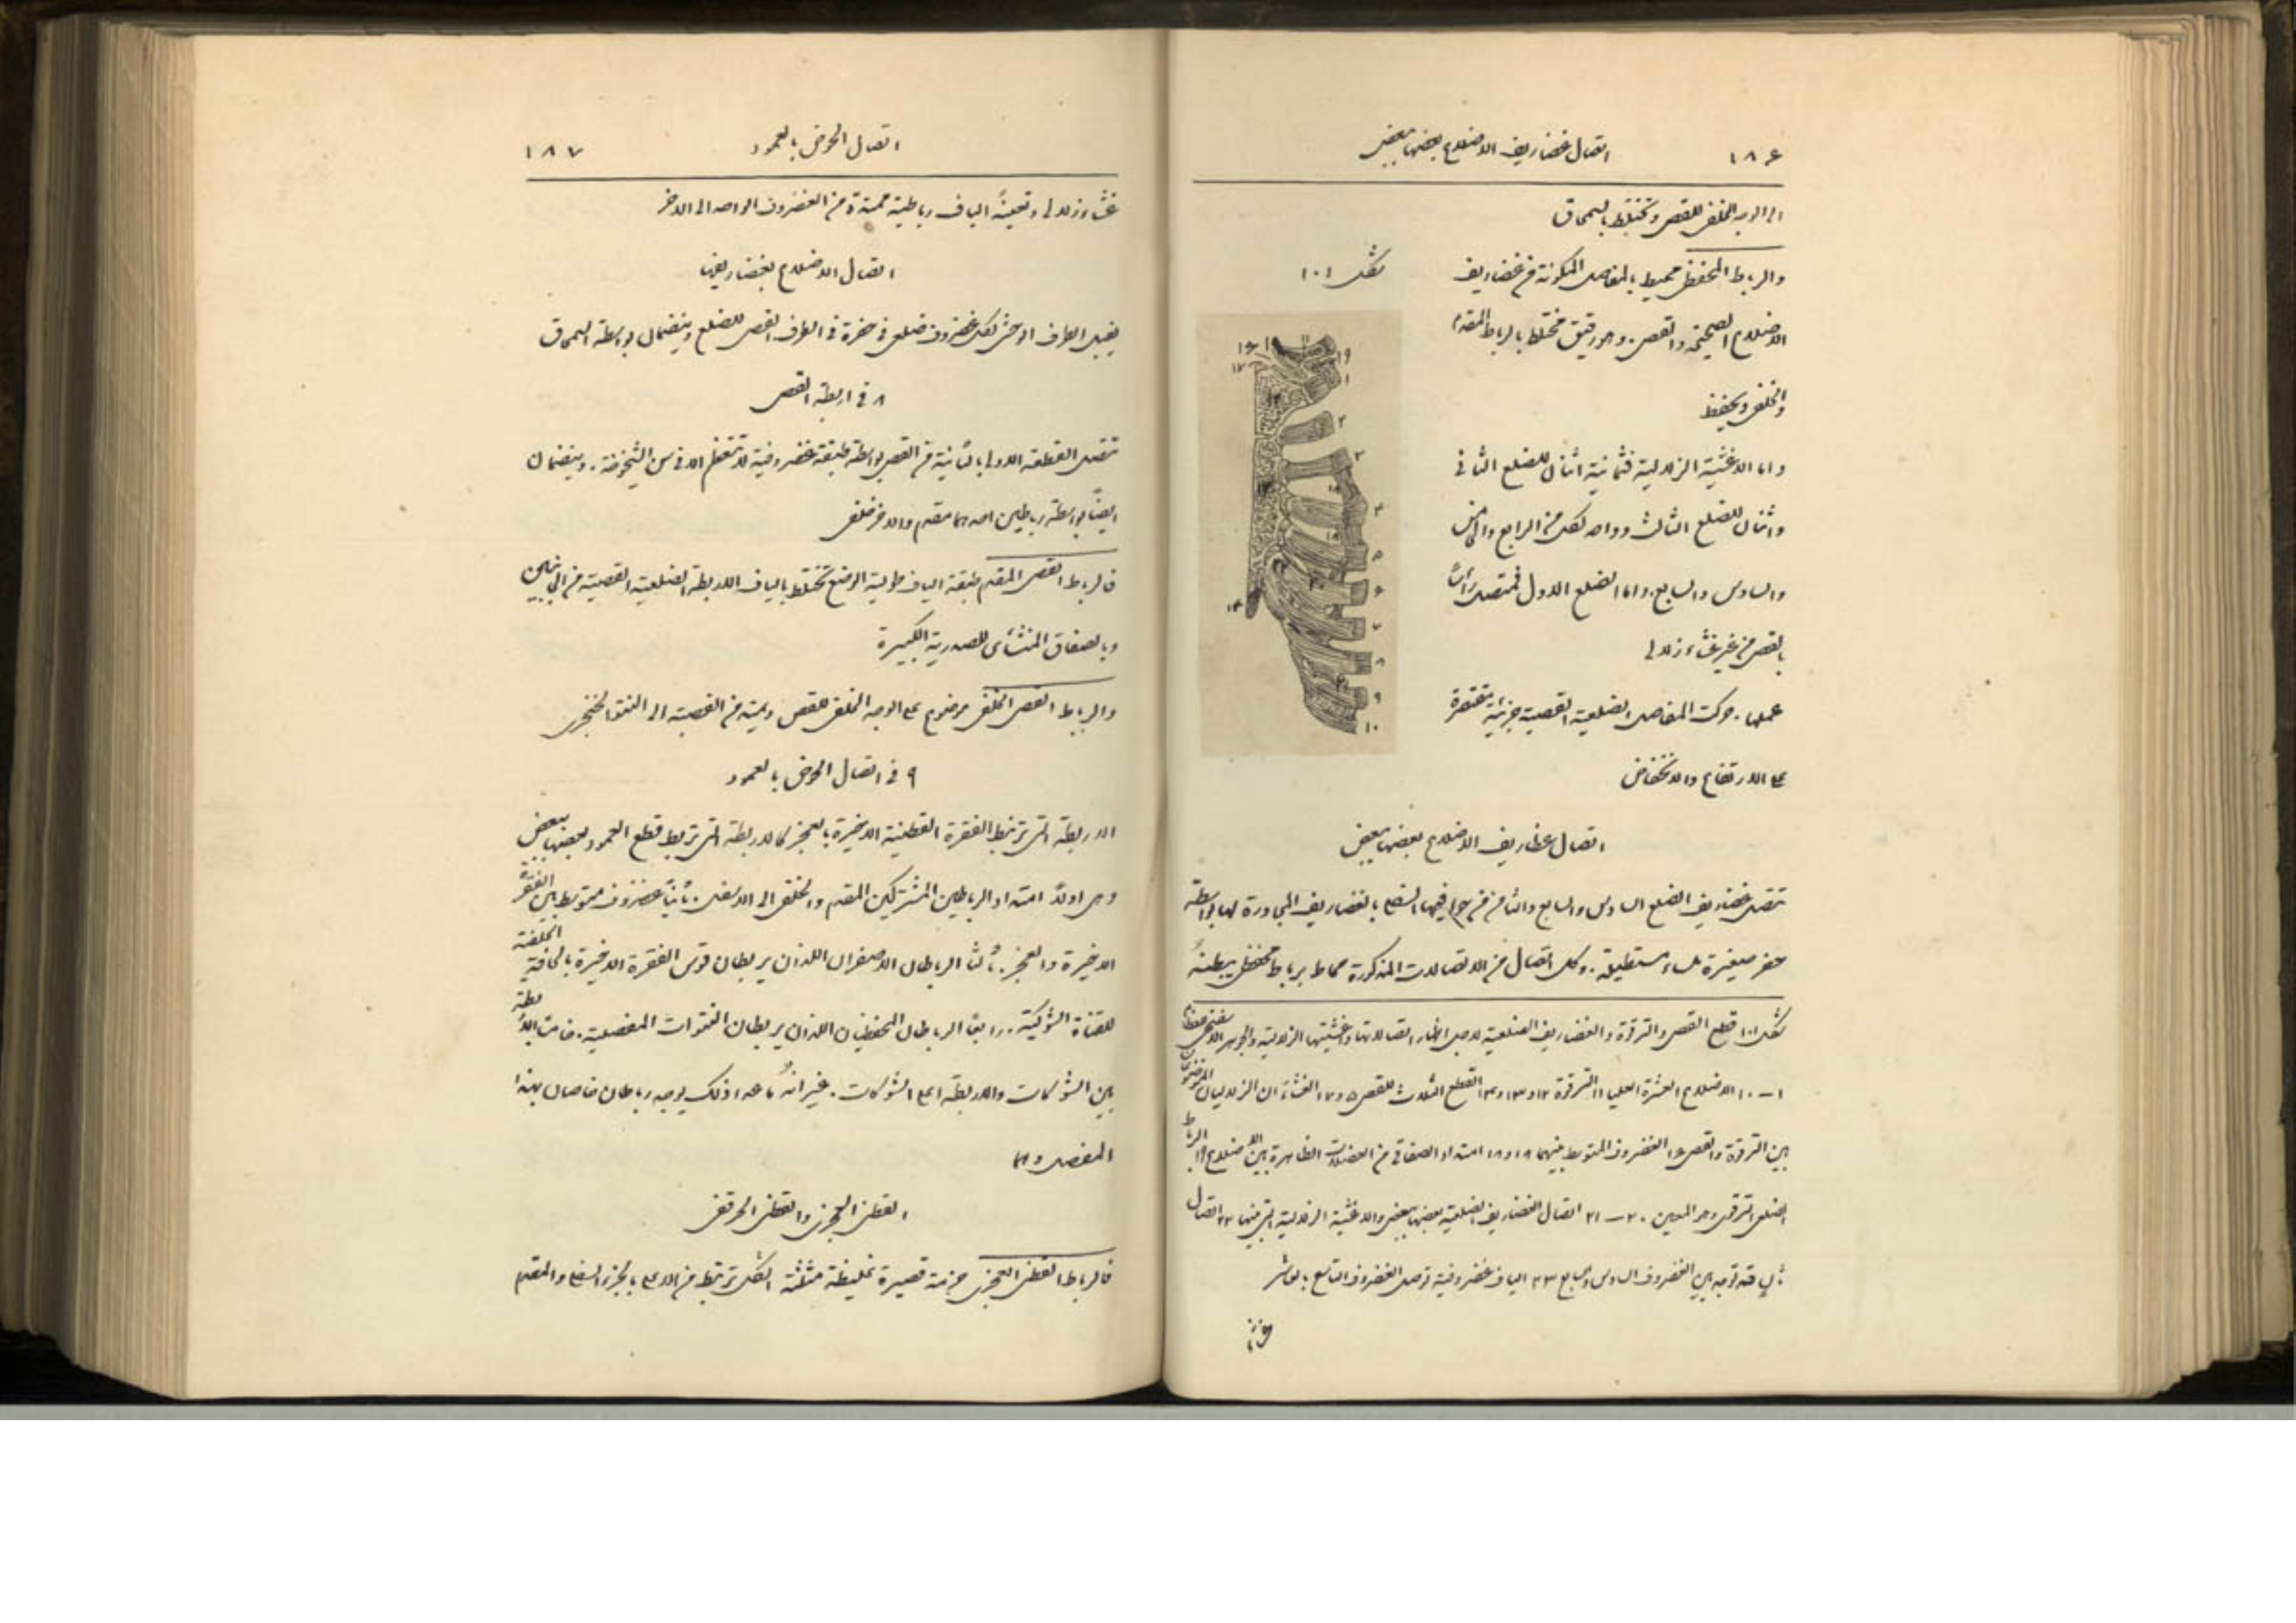 ١٨٦ اتصال غضاريف الاضلاع بعضها ببعض
الى الوجه الخلفي للقص وتختلط بالسمحاق
والرباط المحفظي محيط بالمفاصل المكونة من غضاريف
شكل ١٠١
الاضلاع الصحيحة والقص. وهو رقيق مختلط بالرباط المقدم
والخلفي ويحفظ
واما الاغشية الزلالية فثمانية اثنان للضلع الثاني
واثنان للضلع الثالث وواحد لكل من الرابع والخامس
والسادس والسابع. واما الضلع الاول فمتصل رأسًا
بالقص من غير غشاء زلالي
عملها. حركت المفاصل الضلعية القصية جزئية مقتصرة
على الارتفاع والانخفاض
١٦
١٧
١١
١٩
١
٢
٣
٤
٥
٦
٧
٨
٩
١٠
١٢
١٣
١٤
١٨
١٨
اتصال غظاريف الاضلاع بعضها ببعض
تتصل غضاريف الضلع السادس والسابع والثامن من حوافيها السفلى بالغضاريف المجاورة لها بواسطة
حفر صغيرة ملساء مستطيلة. وكل اتصال من الاتصالات المذكورة محاط برباط محفظي يبطنهُ
شكل ١٠١ قطع القص والترقوة والغضاريف الضلعية لاجل اظهار اتصالاتها واغشيتها الزلالية والجوهر الاسفنجي
١ـ١٠ الاضلاع العشرة العليا ١١ الترقوة ١٢ و١٣ و١٤ القطع الثلاث للقص ١٥ و١٧ الغشاء ان الزلاليان الموضوعان
بين الترقوة والقص ١٦ الغضروف المتوسط بينهما ١٨ و١٨ امتداد الصفاقي من العضلات الظاهرة بين الاضلاع ١٩ الرباط
الضلعي الترقوي وهو المعين ٢٠ـ٢١ اتصال الغضاريف الضلعية بعضها ببعض والاغشية الزلالية التي بينها ٢٢ اتصال
توجد بين الغضروف السادس والسابع ٢٣ الياف غضروفية توصل الغضروف التاسع بالعاشر
اتصال الحوض بالعمود ١٨٧
غشاء زلالي وتعينهُ الياف رباطية ممتدة من الغضروف الواحد الى الاخر
اتصال الاضلاع بغضاريفها
يقبل الطرف الوحشي لكل غضروف ضلعي في حفرة في الطرف القصي للضلع وينضمان بواسطة السمحاق
٨ في اربطة القص
تتصل القطعة الاولى بالثانية من القص بواسطة طبقة غضروفية لا تتعظم الا في سن الشيخوخة. وينضمان
ايضًا بواسطة رباطين احدهما مقدم والاخر خلفي
فالرباط القصي المقدم طبقة الياف طولية الوضع تختلط بالياف الاربطة الضلعية القصية من الجانبين
وبالصفاق المنشأي للصدرية الكبيرة
والرباط القصي الخلفي موضوع على الوجه الخلفي للقص ويمتد من القصبة الى النتو الخنجري
٩ في اتصال الحوض بالعمود
الاربطة التي تربط الفقرة القطنية الاخيرة بالعجز كالاربطة التي تربط قطع العمود بعضها ببعض
وهي اولًا امتداد الرباطين المشتركين المقدم والخلفي الى الاسفل. ثانيًا غضروف متوسط بين الفقرة
الاخيرة والعجز. ثالثًا الرباطان الاصفران اللذان يربطان قوس الفقرة الاخيرة بالحافة الخلفية
للقناة الشوكية. رابعًا الرباطان المحفظيان اللذان يربطان النتوات المفصلية. خامسًا الاربطة
بين الشوكات والاربطة اعلى الشوكات. غير انهُ ما عدا ذلك يوجد رباطان خاصان بهذا
المفصل وهما
القطني العجزي والقطني الحرقفي
فالرباط القطني العجزي حزمة قصيرة غليظة مثلثة الشكل ترتبط من الاعلى بالجزء السفلي والمقدم